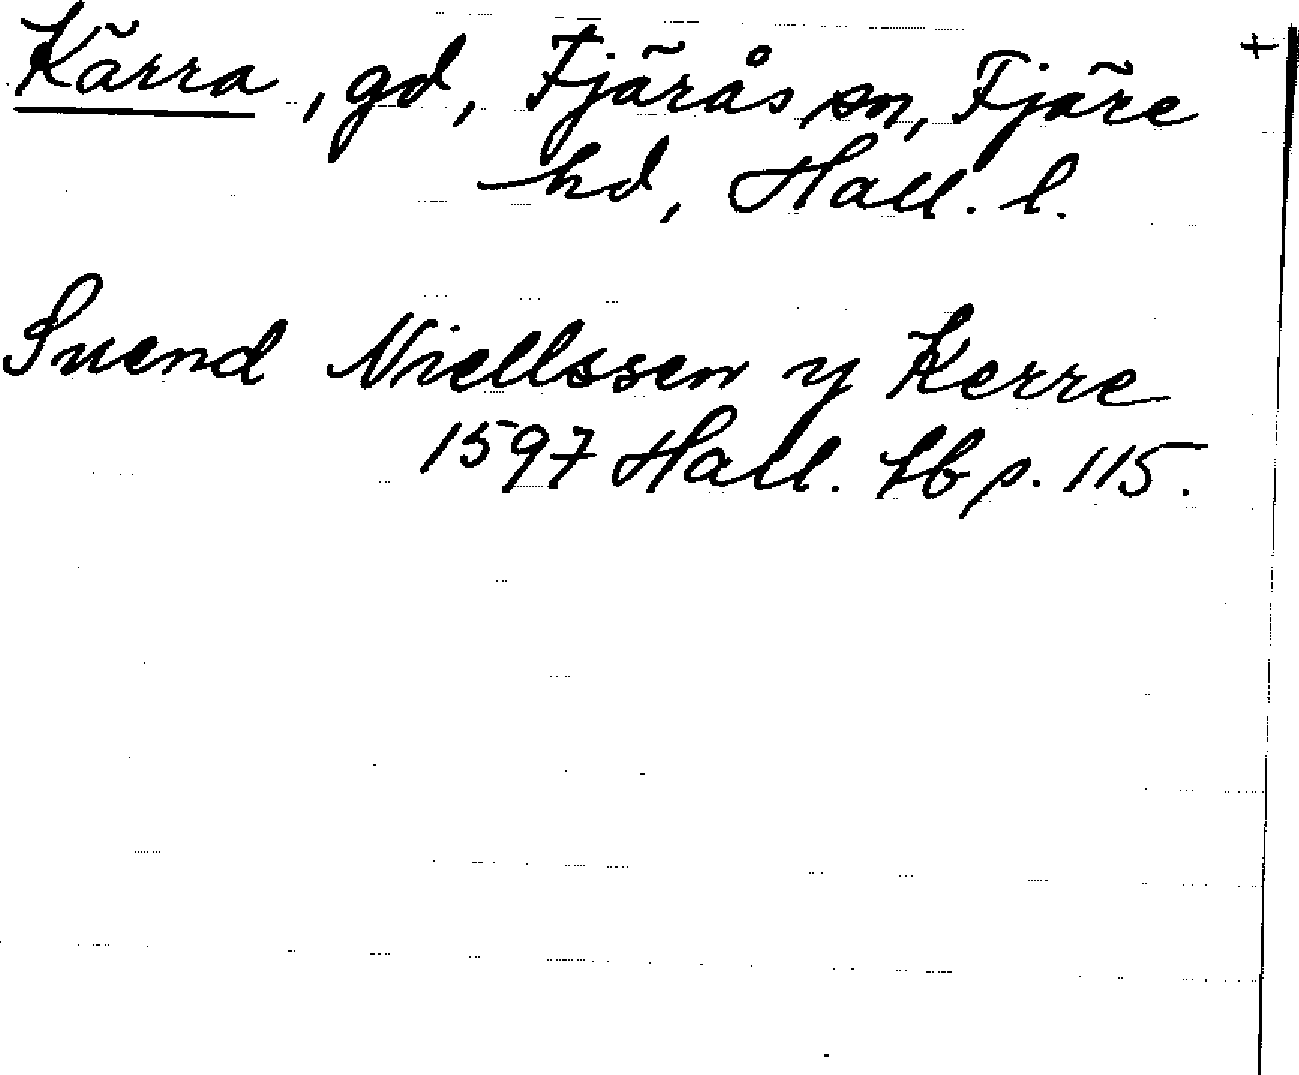 Kärra, gd, Fjärås sn, Fjäre +
hd, Hall. l.
Svend Niellssen y Kerre
1597 Hall. lb p. 115.